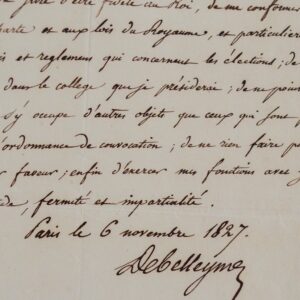 jure d'être fidèle au Roi, de me conformer
charte et aux lois du Royaume, et particuliere
is et reglemens qui concernent les élections; de
dans le college que je présiderai; de ne pouv
s'y occupe d'autres objets que ceux qui sont
'ordonnance de convocation; de ne rien faire p
r faveur; enfin d'exercer mes fonctions avec
de, fermeté et impartialité.
Paris le 6 novembre 1827.
Debelleyme